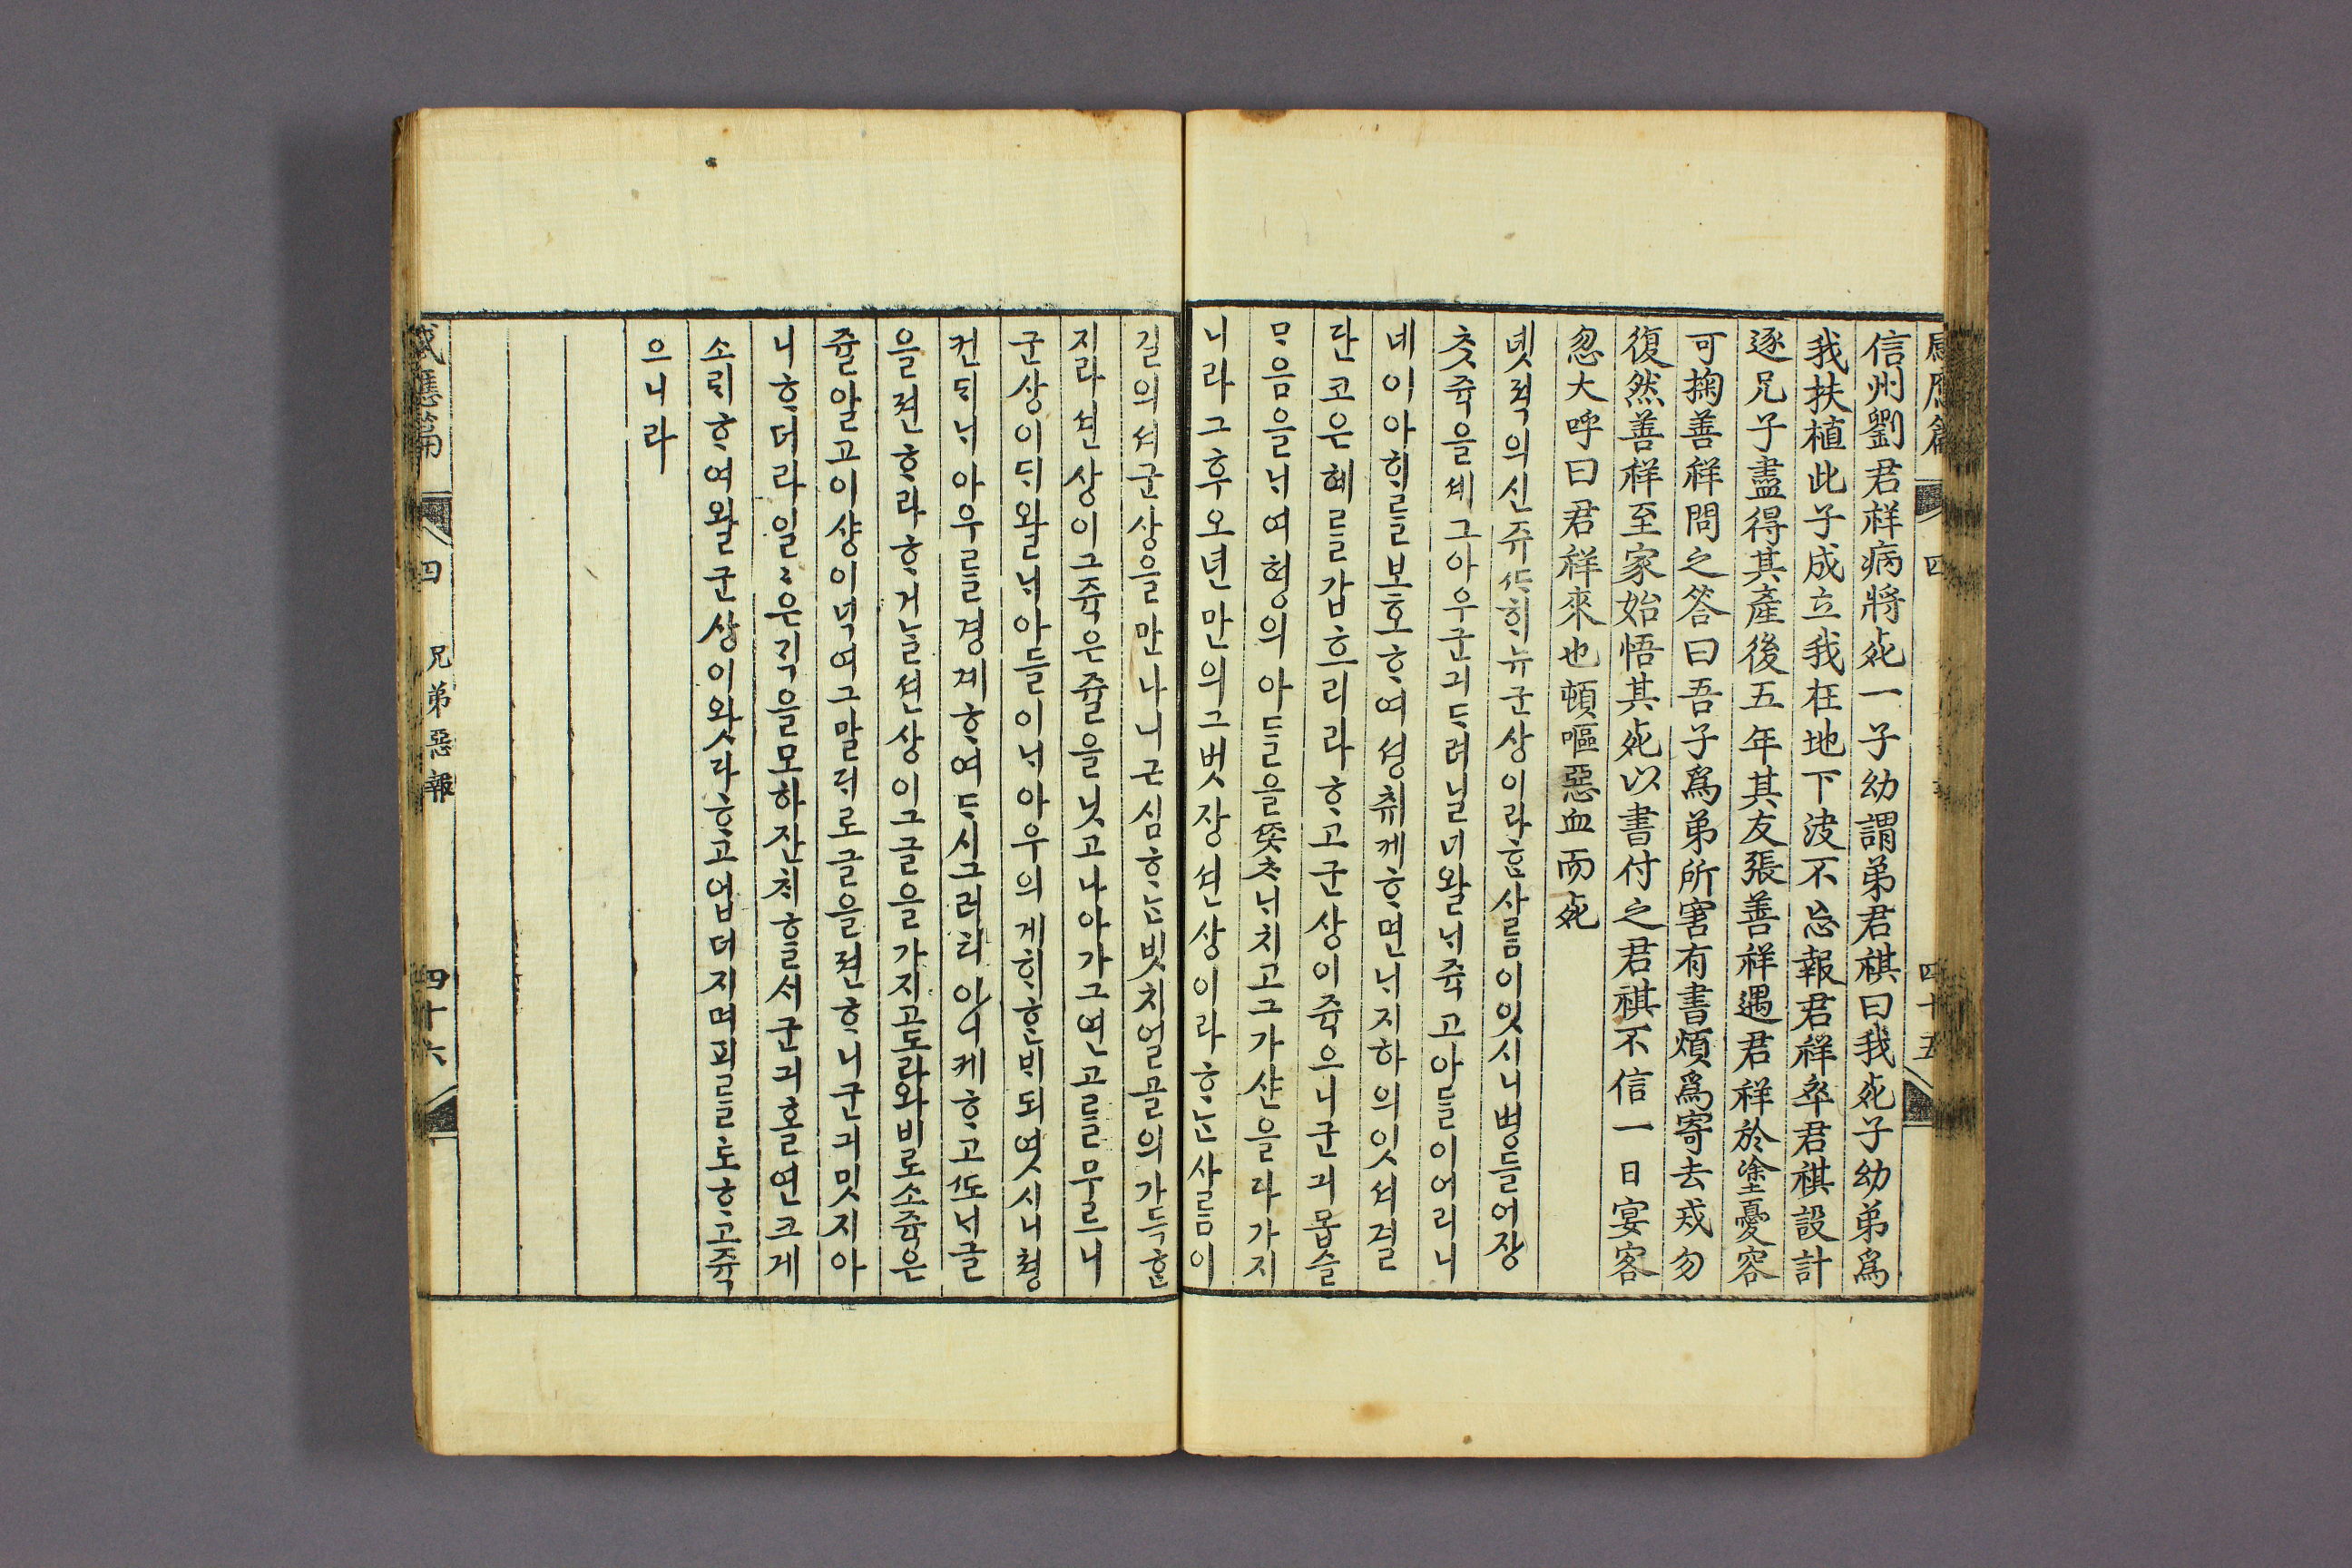 信州劉君祥病將死一子幼謂弟君祺曰我死子幼弟爲
我扶植此子成立我在地下決不忘報君祥卒君祺設計
逐兄子盡得其產後五年其友張善祥遇君祥於塗憂容
可掬善祥問之答曰吾子爲弟所害有書煩爲寄去戒勿
復然善祥至家始悟其死以書付之君祺不信一日宴客
忽大呼曰君祥來也頓嘔惡血而死
녯적의신쥬ᄯᅡᄒᆡ뉴군상이라ᄒᆞᆷ사ᄅᆞᆷ이잇시니병들어쟝
ᄎᆞᆺ쥭을ᄉᆡ그아우군긔ᄃᆞ려닐너왈ᄂᆡ쥭고아들이어리니
네이아ᄒᆡᄅᆞᆯ보호ᄒᆞ여셩취케ᄒᆞ면ᄂᆡ지하의잇셔결
단코은혜ᄅᆞᆯ갑흐리라ᄒᆞ고군상이쥭으니군긔몹슬
ᄆᆞ음을ᄂᆡ여형의아ᄃᆞᆯ을ᄶᅩᆺᄎᆞᄂᆡ치고그가샨을다가지
니라그후오년만의그벗쟝션상이라ᄒᆞᄂᆞᆫ사ᄅᆞᆷ이
길의셔군상을만나니근심ᄒᆞᄂᆞᆫ빗치얼골의가득ᄒᆞᆫ
지라션상이그쥭은쥴을닛고나아가그연고ᄅᆞᆯ무르니
군상이ᄃᆡ왈ᄂᆡ아들이ᄂᆡ아우의게ᄒᆡᄒᆞᆫᄇᆡ되엿시니쳥
컨ᄃᆡᄂᆡ아우ᄅᆞᆯ경계ᄒᆞ여ᄃᆞ시그러히아니케ᄒᆞ고ᄯᅩᄂᆡ글
을젼ᄒᆞ라ᄒᆞ거ᄂᆞᆯ션상이그글을가지고도라와비로소쥭은
쥴알고이샹이넉여그말ᄃᆡ로글을젼ᄒᆞ니군긔밋지아
니ᄒᆞ더라일〻은ᄀᆡᆨ을모하잔ᄎᆡᄒᆞᆯᄉᆡ군긔홀연크게
소ᄅᆡᄒᆞ여왈군상이왓다ᄒᆞ고업더지며피ᄅᆞᆯ토ᄒᆞ고쥭
으니라
感應篇 四 兄弟惡報 四十六